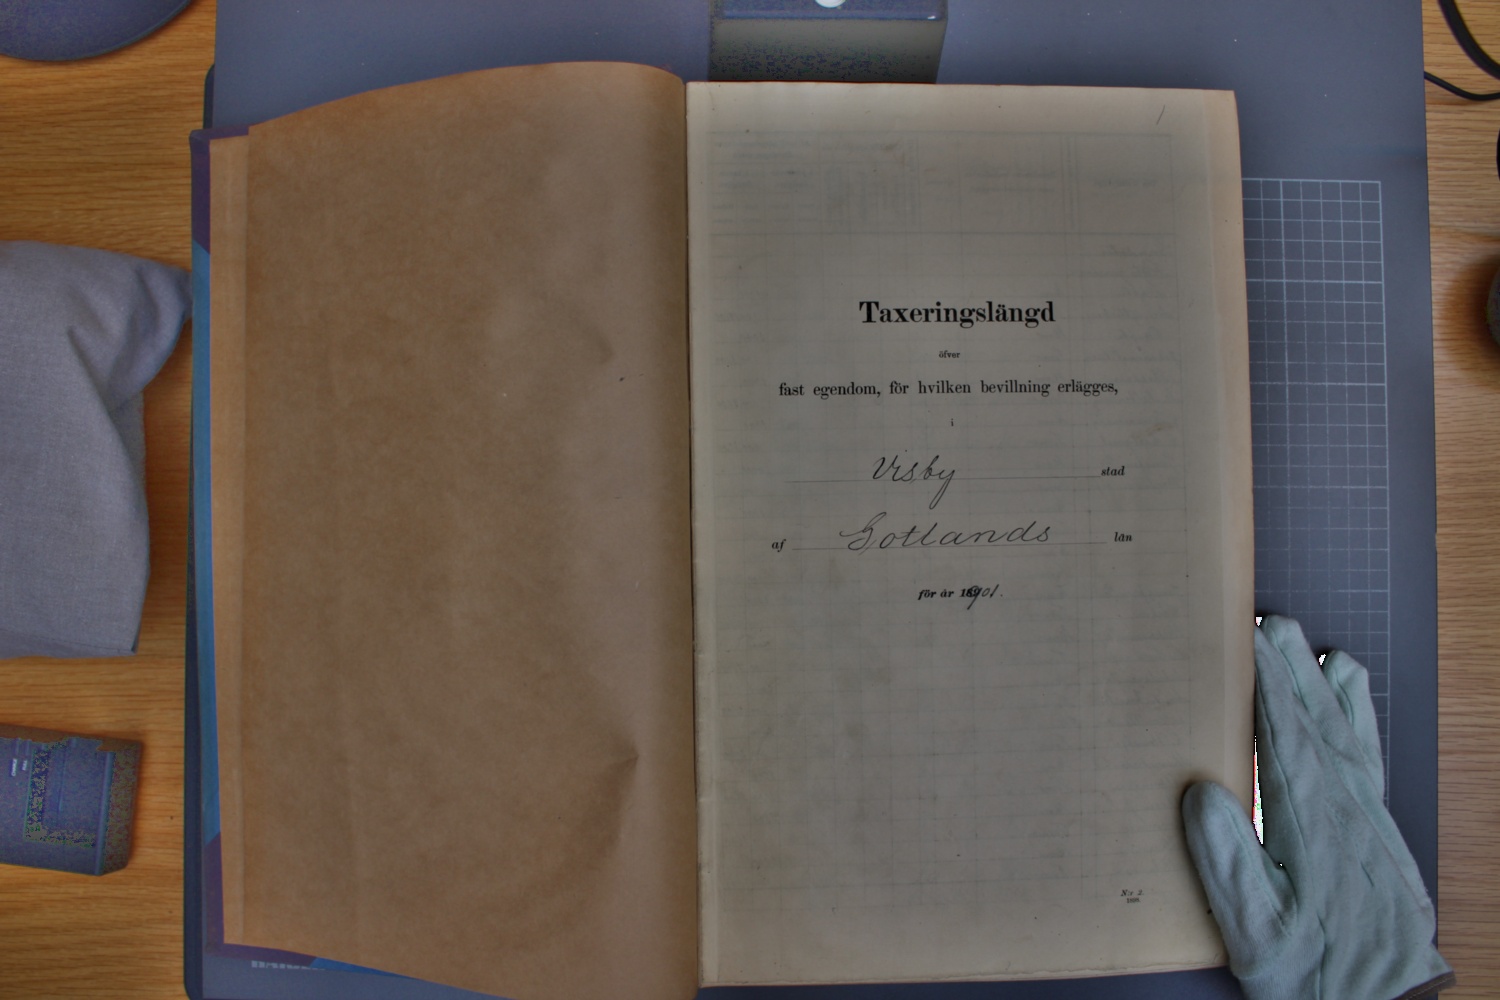 1
Taxeringslängd
öfver
fast egendom, för hvilken bevillning erlägges,
i
Visby stad
af Gotlands län
för år 1901.
N:r 2.